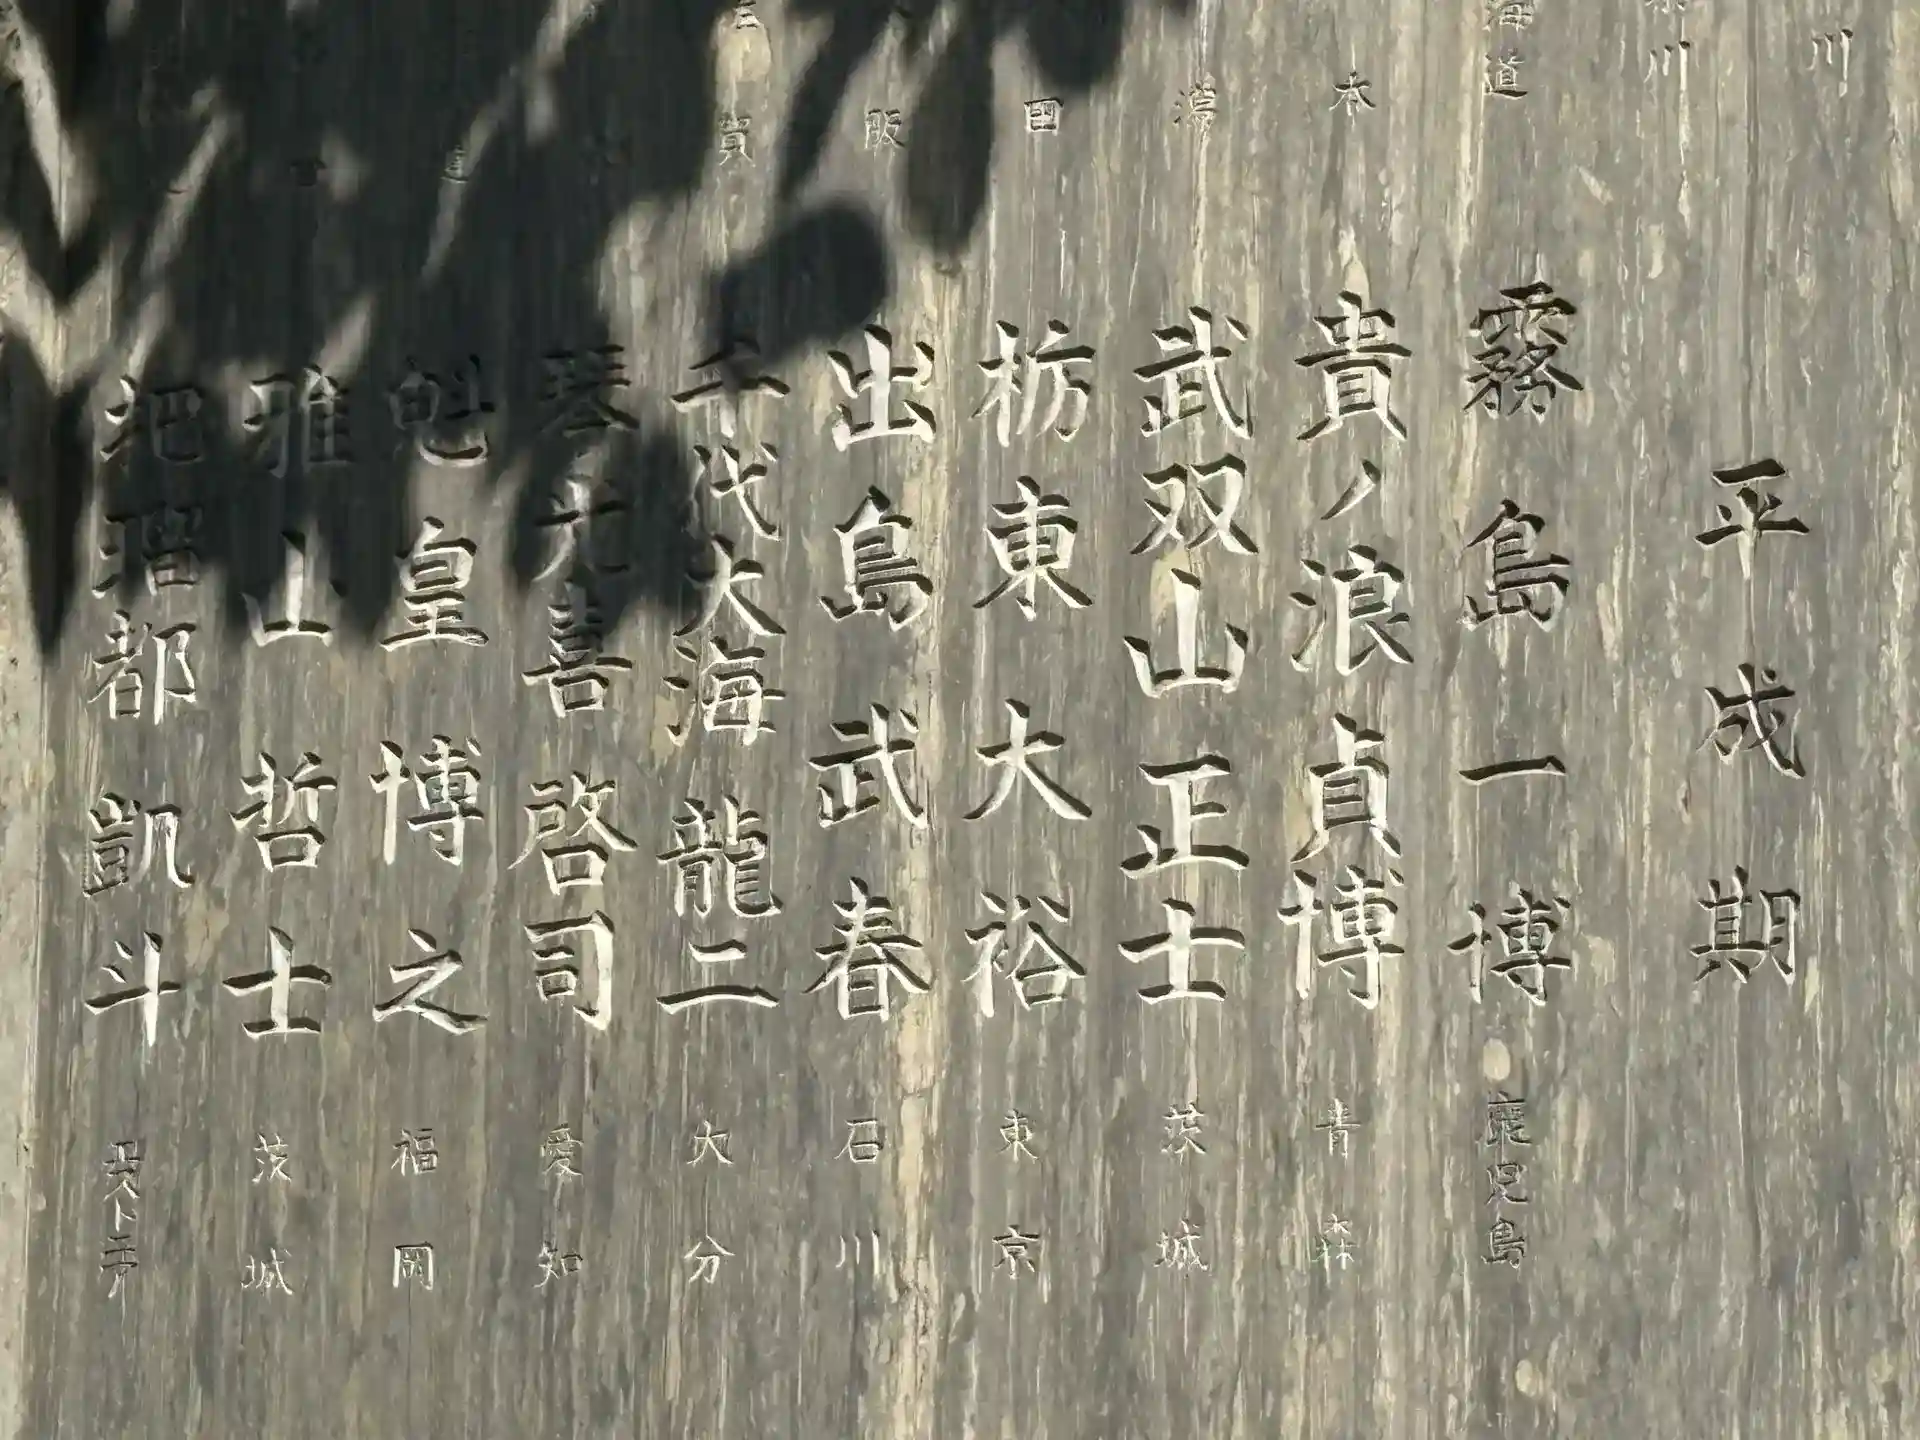 川
川
海道
本
潟
田
阪
賀
道
平成期
霧島一博 鹿児島
貴ノ浪貞博 青森
武双山正士 茨城
栃東大裕 東京
出島武春 石川
千代大海龍二 大分
琴光喜啓司 愛知
魁皇博之 福岡
雅山哲士 茨城
把瑠都凱斗